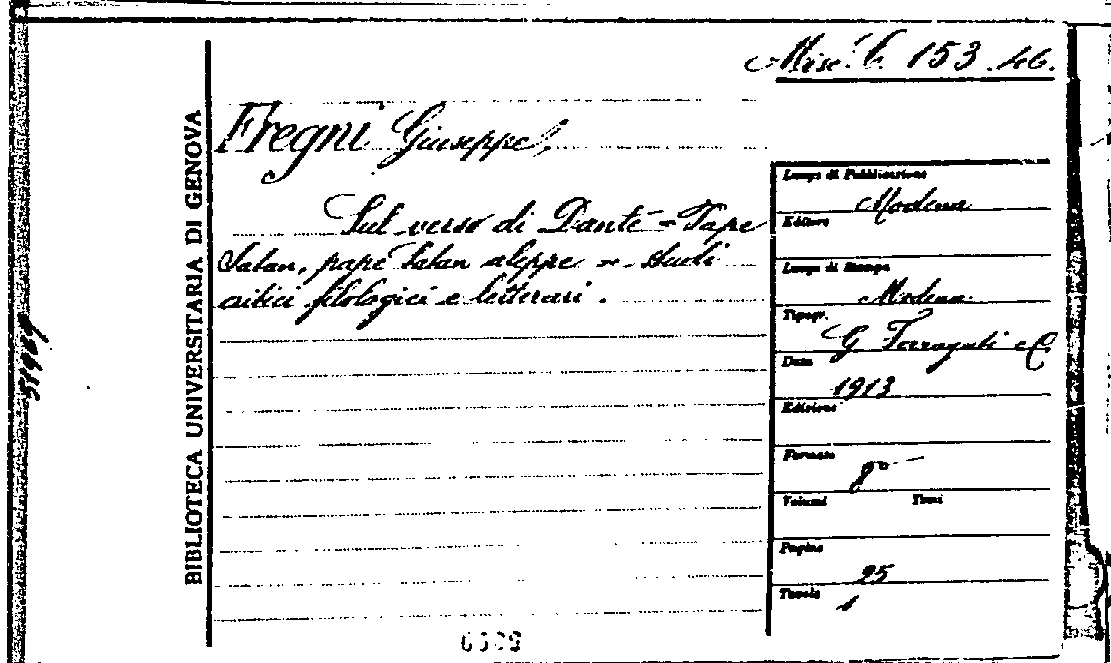 Misc. C. 153.46.
BIBLIOTECA UNIVERSITARIA DI GENOVA
Fregni Giuseppe,
Sul verso di Dante = Pape
Satan, papé Satan aleppe = studi
critici filologici e letterari.
Luogo di Pubblicazione
Modena
Editore
Luogo di Stampa
Modena
Tipogr.
G Ferraguti e C.
Data
1913
Edizione
Formato
8°
Volumi Tomi
Pagine
25
Tavole
1